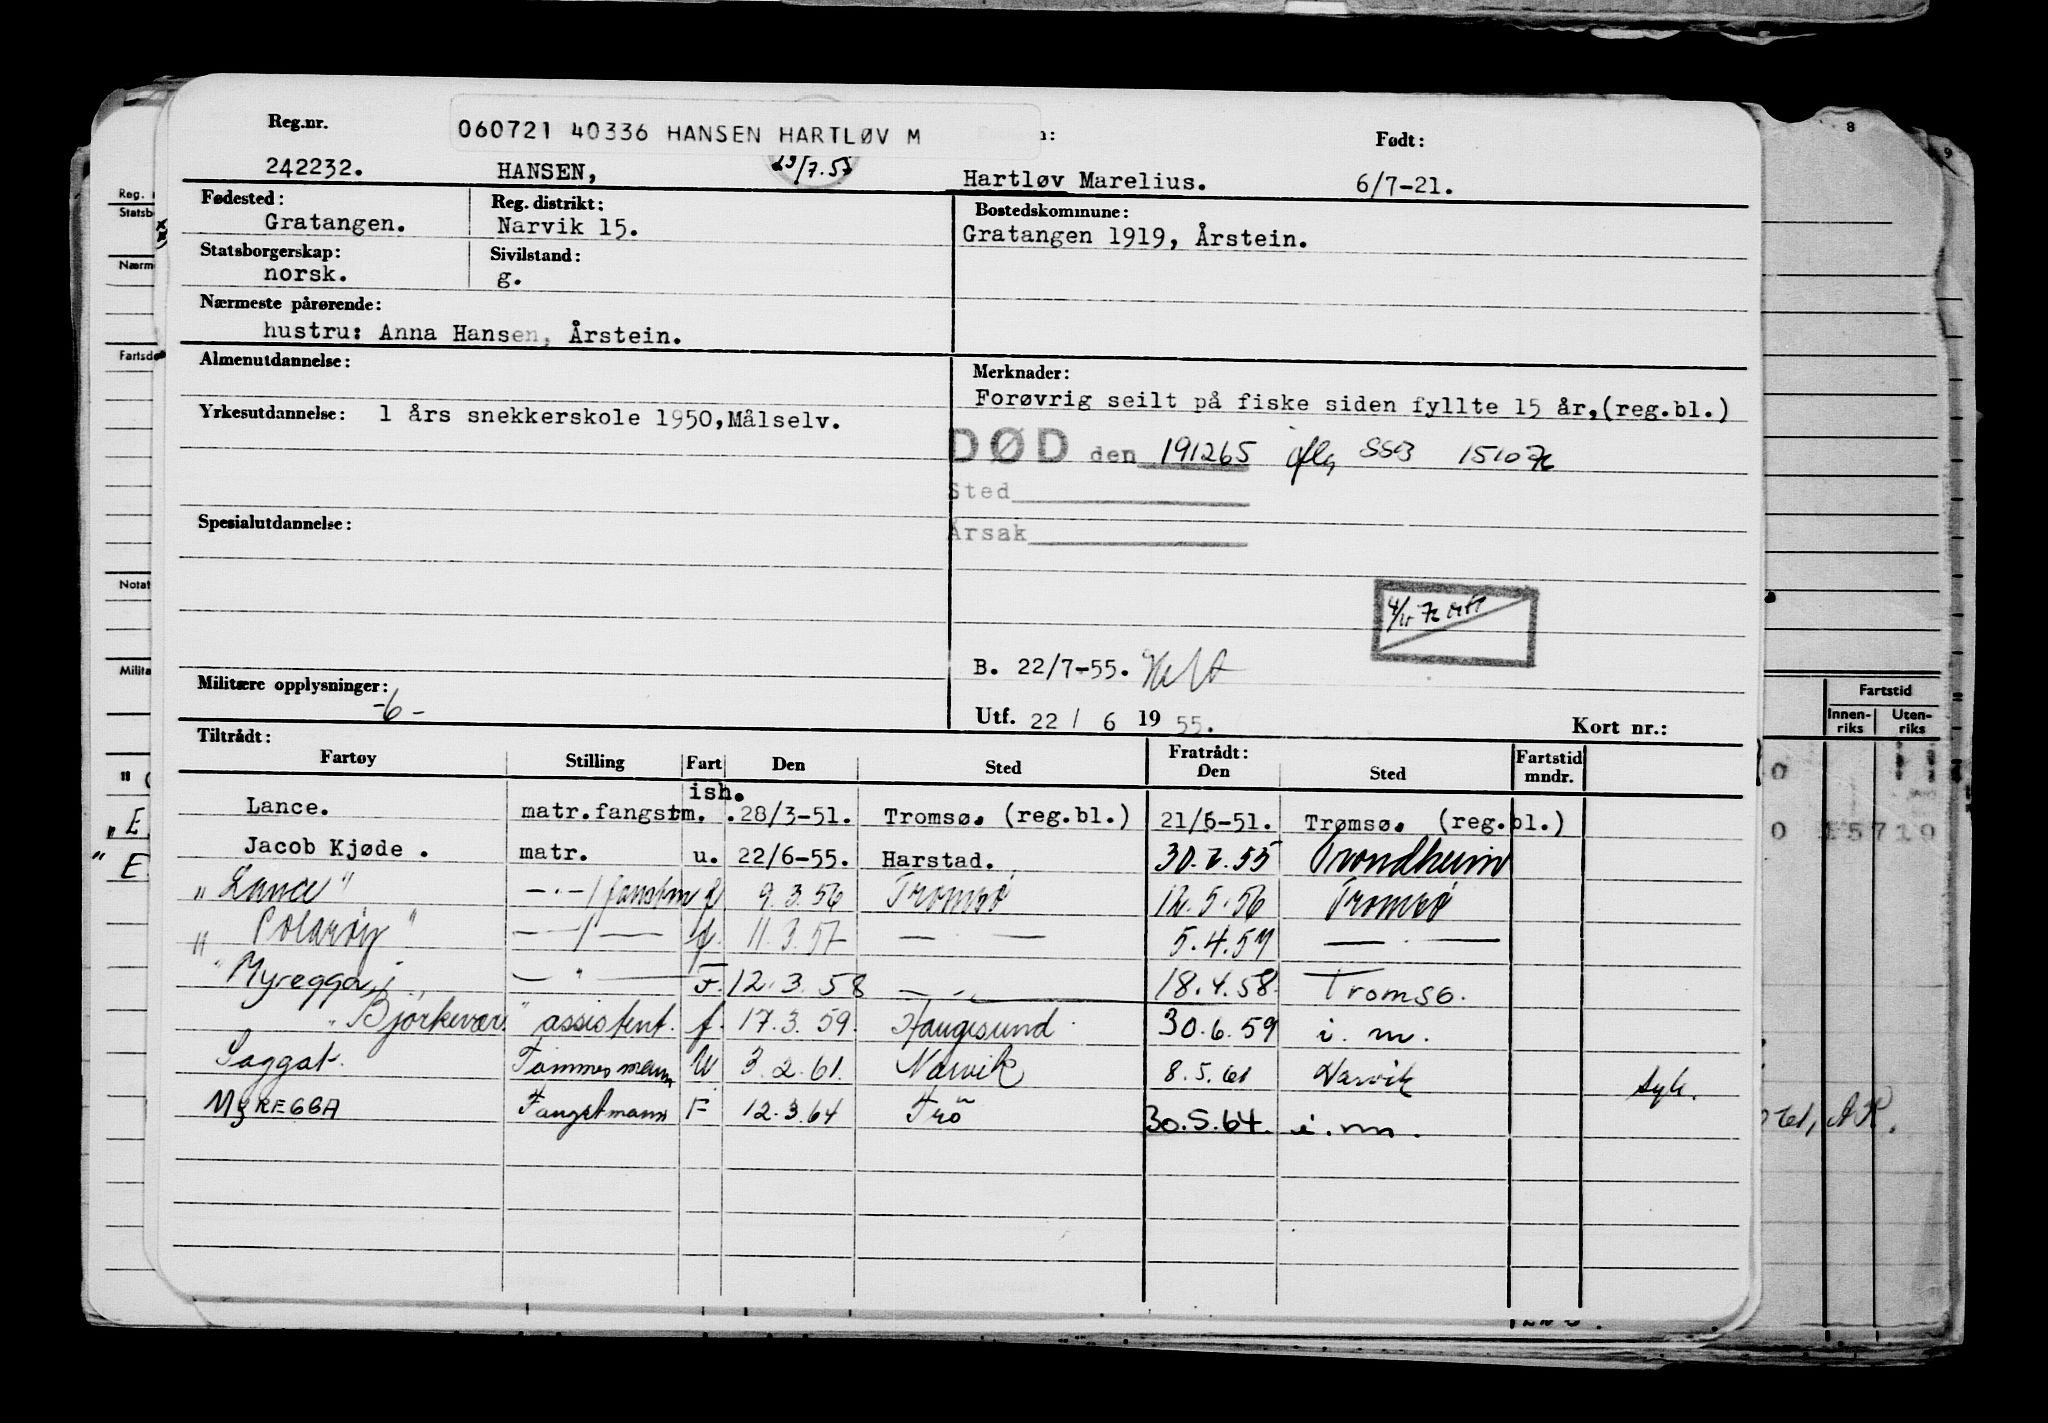 Reg.nr. 060721 40336 HANSEN HARTLØV M Født:
242232. HANSEN, 23/7.55 Hartløv Marelius. 6/7-21.
Fødested: Reg. distrikt: Bostedskommune:
Gratangen. Narvik 15. Gratangen 1919, Årstein.
Statsborgerskap: Sivilstand:
norsk. g.
Nærmeste pårørende:
hustru: Anna Hansen, Årstein.
Almenutdannelse: Merknader:
Forøvrig seilt på fiske siden fyllte 15 år,(reg.bl.)
Yrkesutdannelse: 1 års snekkerskole 1950,Målselv.
DØD den 191265 iflg SSB 151072
Sted
Årsak
Spesialutdannelse:
B. 22/7-55.
Militære opplysninger:
-6-
Utf. 22 / 6 19 55. Kort nr.:
Tiltrådt: Fratrådt:
Fartøy Stilling Fart Den Sted Den Sted Fartstid mndr.
ish.
Lance. matr.fangstm. .28/3-51. Tromsø. (reg.bl.) 21/6-51. Trømsø. (reg.bl.)
Jacob Kjøde . matr. u. 22/6-55. Harstad. 30.7.55 Trondheim
" Lance " —"—/fanstm f 9.3.56 Tromsø 12.5.56 Tromsø
" Polarøy " —/— f. 11.3.57 — — 5.4.57 — —
" Myregga, —"— F. 12.3.58 — " — 18.4.58 Tromsø.
" Bjørkevær " assistent. f. 17.3.59. Haugesund 30.6.59 i. m.
Saggat. Tømmermann U 3.2.61. Narvik 8.5.61 Narvik syk.
MYREGGA Fangstmann F 12.3.64 Trö 30.5.64. i.m.
Reg.
Statsb
Nærm
Fartsd
Notat
Milita
8
9
Fartstid
Innen-riks Uten-riks
" E
" E